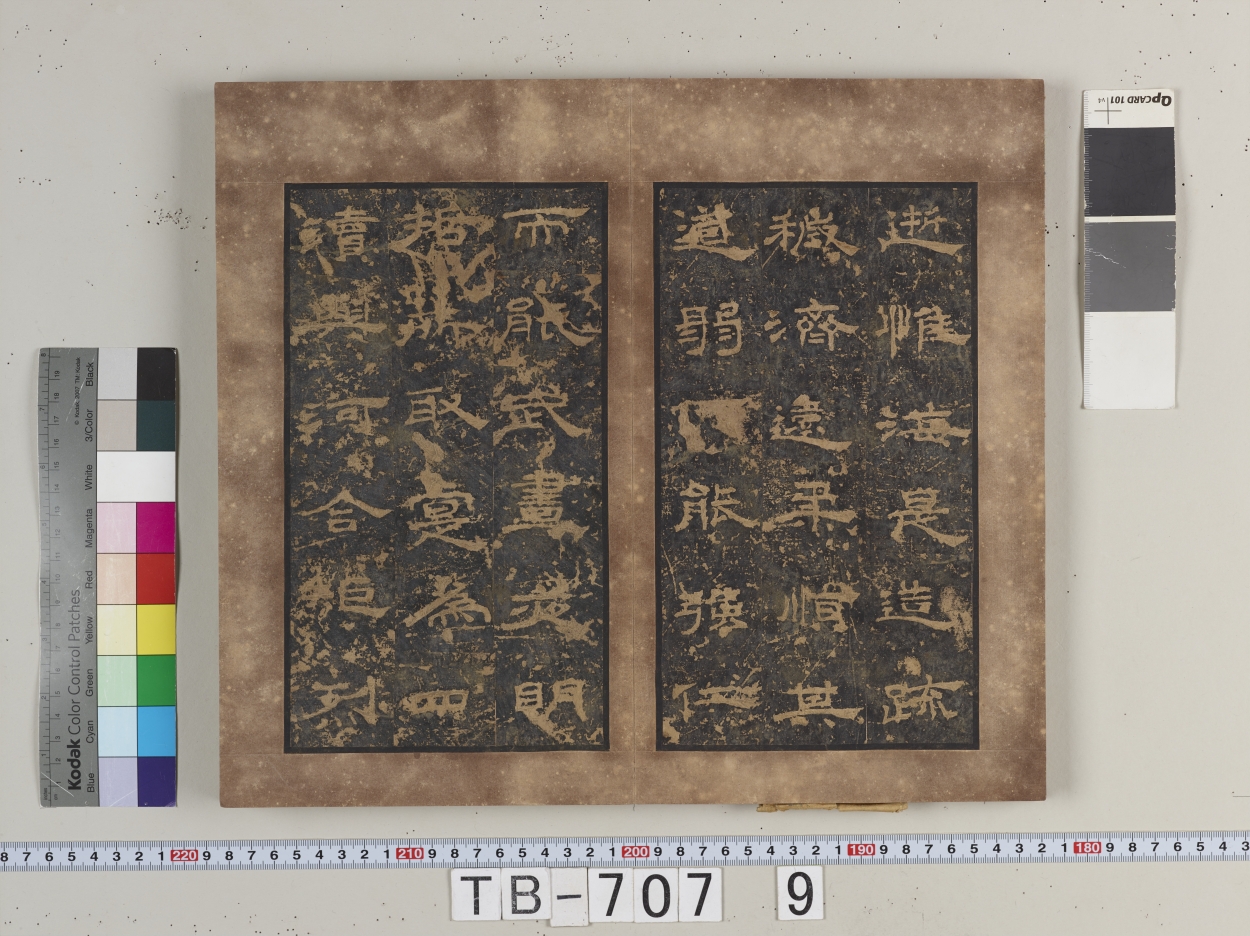 逝惟海是造疏
穢濟遠柔順其
道弱能強仁
而能武晝明
哲所取寔為四
瀆與河合矩列
QpCARD 101 v4
Kodak Color Control Patches
© Kodak, 2007 TM: Kodak
Black
3/Color
White
Magenta
Red
Yellow
Green
Cyan
Blue
8 7 6 5 4 3 2 1 220 9 8 7 6 5 4 3 2 1 210 9 8 7 6 5 4 3 2 1 200 9 8 7 6 5 4 3 2 1 190 9 8 7 6 5 4 3 2 1 180 9 8 7 6 5 4 3
TB-707 9